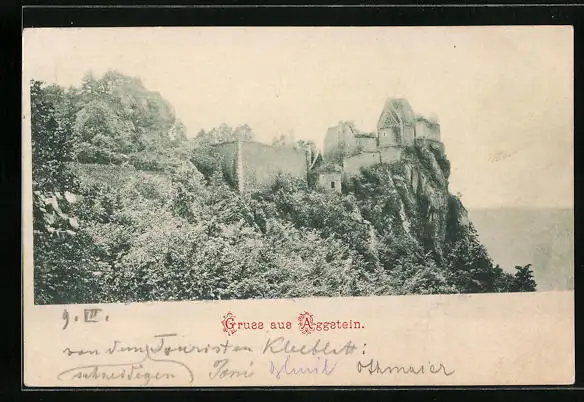 Gruss aus Aggstein.
9. VII.
von dem Touristen Kleeblatt:
schneidigen Toni Othmaier